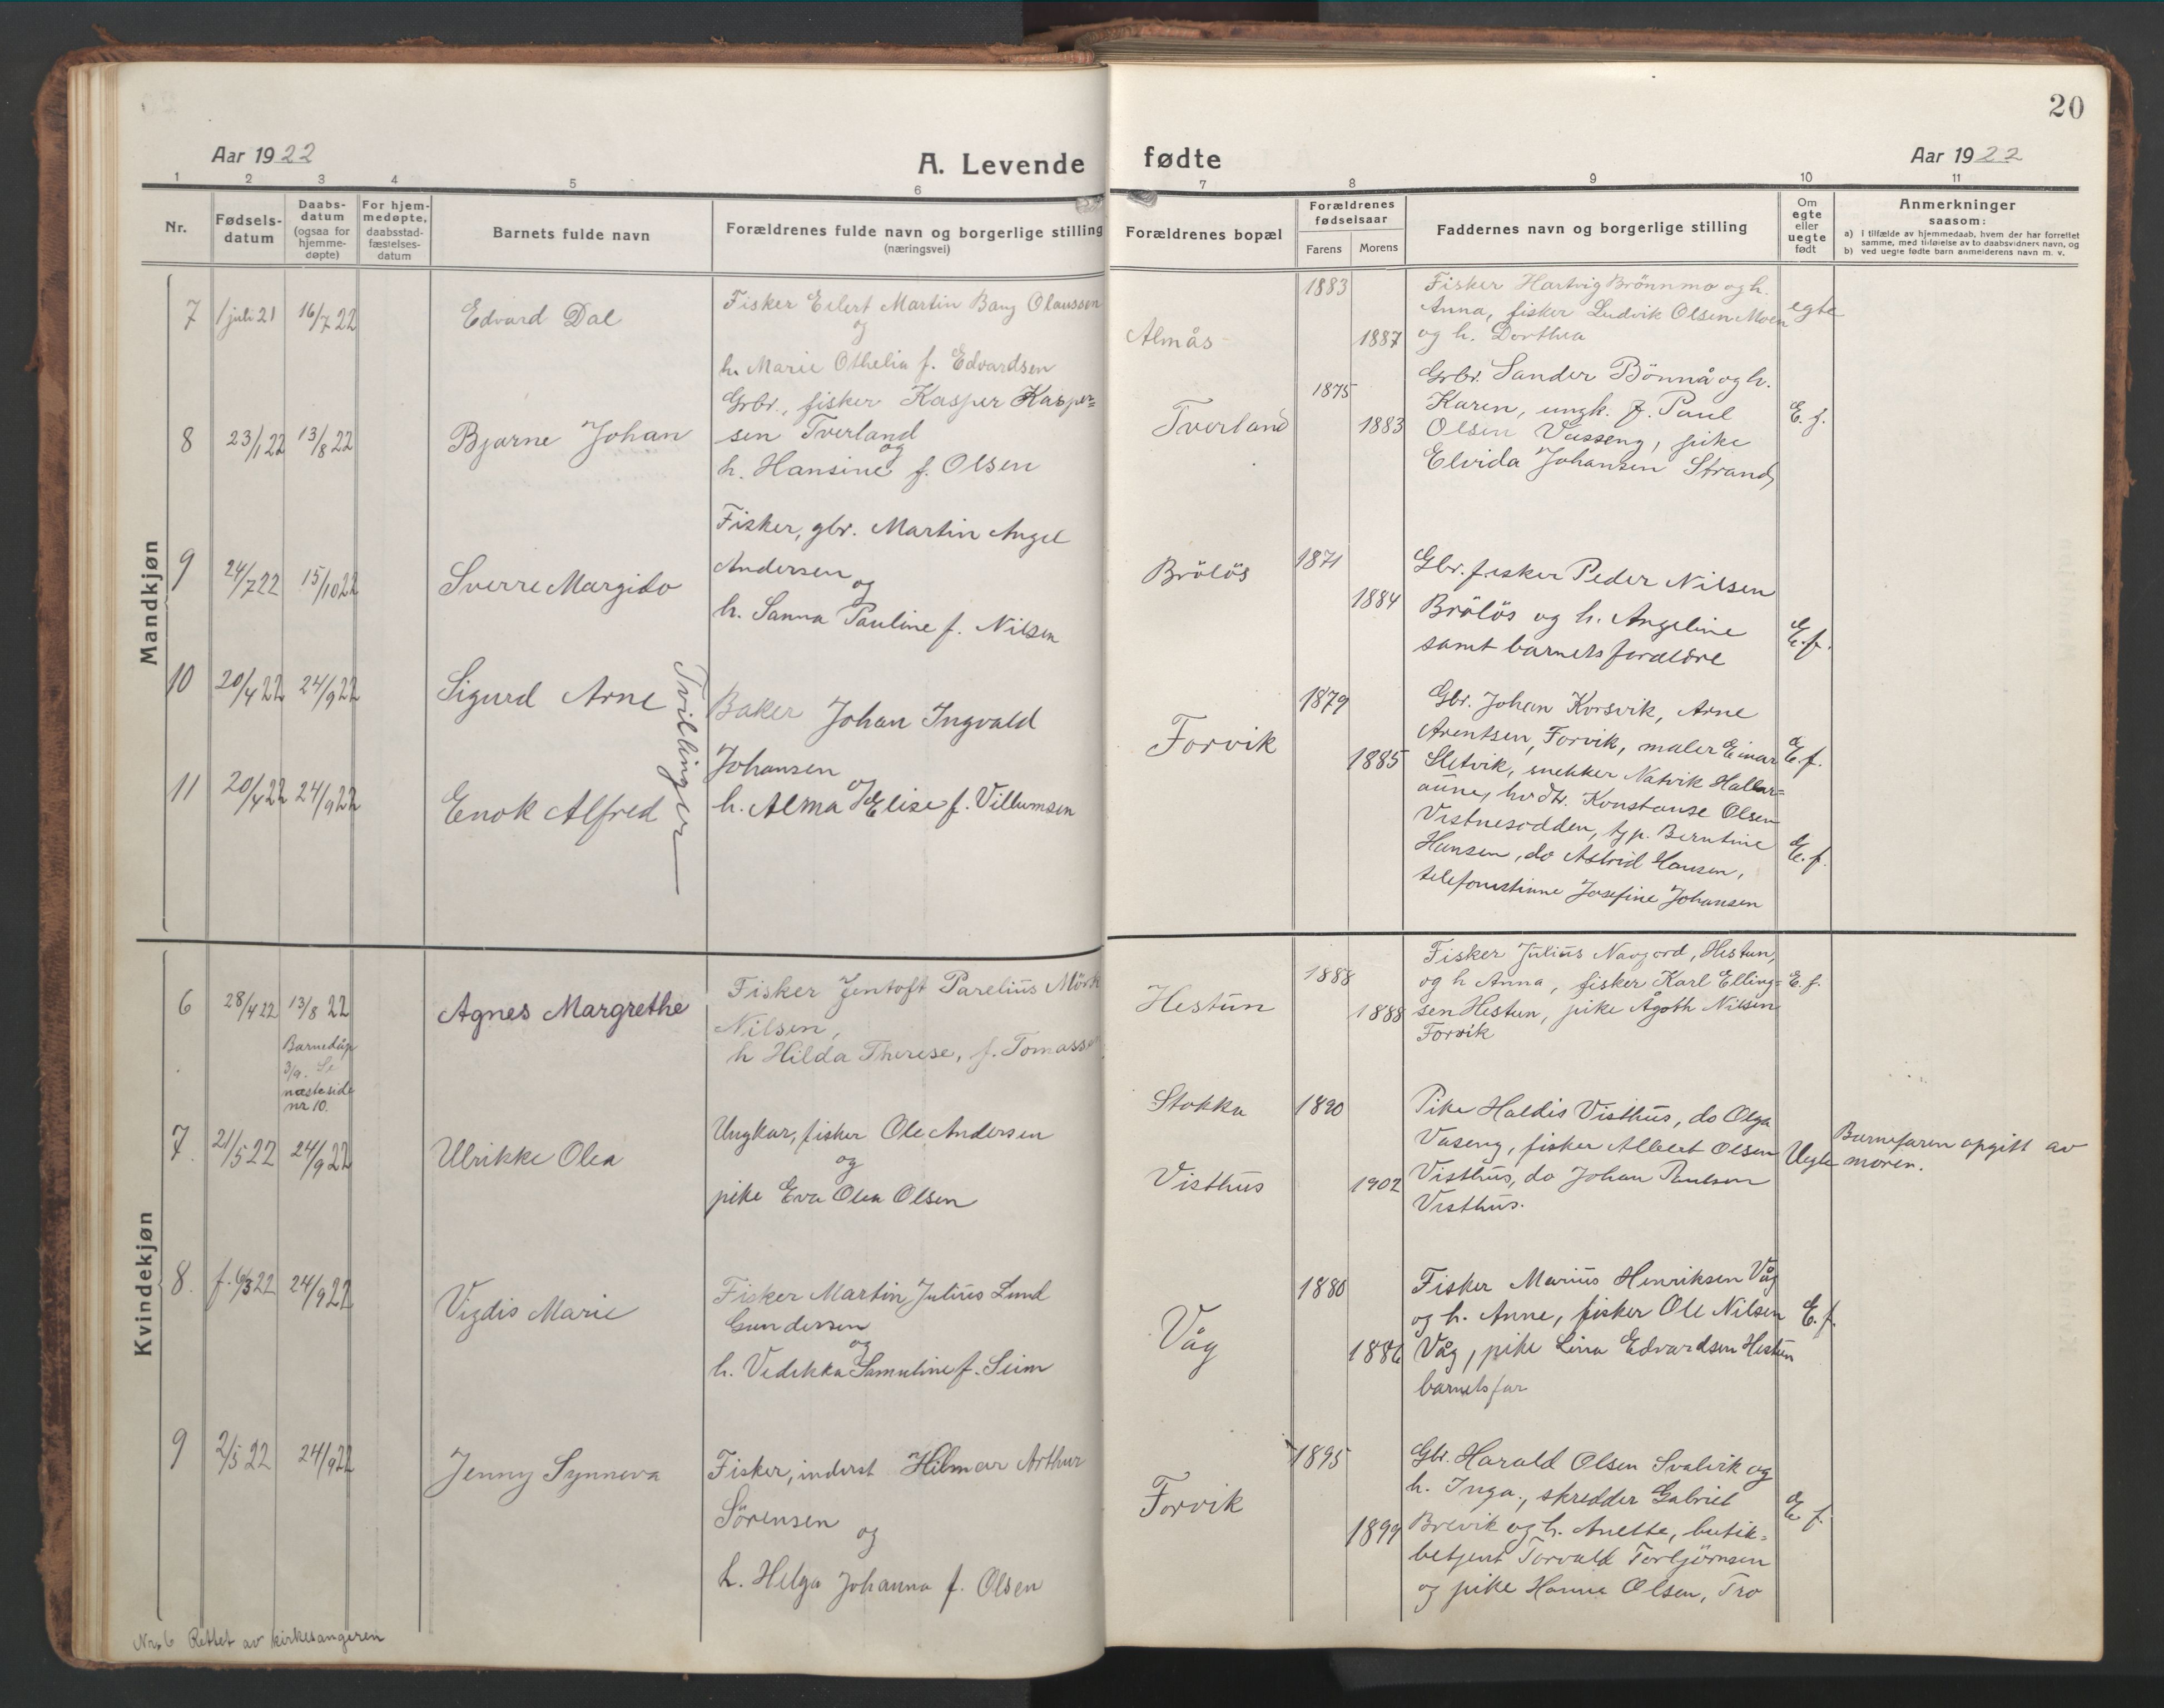 20
Aar 1922
A. Levende fødte
Aar 1922
1 2 3 4 5 6 7 8 9 10 11
Nr.
Fødsels-
datum
Daabs-
datum
(ogsaa for
hjemme-
døpte)
For hjem-
medøpte,
daabsstad-
fæstelses-
datum
Barnets fulde navn
Forældrenes fulde navn og borgerlige stilling
(næringsvei)
Forældrenes bopæl
Forældrenes
fødselsaar
Farens Morens
Faddernes navn og borgerlige stilling
Om
egte
eller
uegte
født
Anmerkninger
saasom:
a) I tilfælde av hjemmedaab, hvem der har forrettet
samme, med tilføielse av to daabsvidners navn, og
b) ved uegte fødte barn anmelderens navn m. v.
Mandkjøn
7 1 juli 21 16/7 22
Edvard Dal
Fisker Eilert Martin Bang Olaussen
og
h. Marie Othelia f. Edvardsen
Almås
1883
1887
Fisker Hartvig Brönnmo og h.
Anna, fisker Ludvik Olsen Moen
og h. Dorthea
egte
8 23/1 22 13/8 22
Bjarne Johan
Grbr., fisker Kasper Kasper=
sen Tverland
og
h. Hansine f. Olsen
Tverland
1875
1883
Grbr. Sander Bönnå og h.
Karen, ungk. f. Paul
Olsen Vasseng, pike
Elvida Johansen Strand
E. f.
9 24/7 22 15/10 22
Sverre Margido
Fisker, gbr. Martin Angel
Andersen
og
h. Sanna Pauline f. Nilsen
Brölös
1871
1884
Gbr. fisker Peder Nilsen
Brölös og h. Angeline
samt barnets foraldre
E. f.
10 20/4 22 24/9 22
Sigurd Arne
Tvillinger
11 20/4 22 24/9 22
Enok Alfred
Baker Johan Ingvald
Johansen
og
h. Alma Elise f. Villumsen
Forvik
1879
1885
Gbr. Johan Korsvik, Arne
Arentsen, Forvik, maler Einar
Sletvik, snekker Natvik Hallar=
aune, Konstanse Olsen
Vistnesodden, tjp. Berntine
Hansen, do Astrid Hansen,
telefonistinne Josefine Johansen
E. f.
E. f.
Kvindekjøn
6 28/4 22 13/8 22
Barnedåp
3/9. Se
næste side
nr 10.
Agnes Margrethe
Fisker Jentoft Parelius Mörk
Nilsen,
h Hilda Therese, f. Tomassen
Hestun
1888
1888
Fisker Julius Navgord, Hestun,
og h Anna, fisker Karl Elling=
sen Hestun, pike Ågoth Nilsen
Forvik
E. f.
7 21/5 22 24/9 22
Ulrikke Olea
Ungkar, fisker Ole Andersen
og
pike Eva Olea Olsen
Stokka
Visthus
1890
1902
Pike Haldis Visthus, do Olga
Vaseng, fisker Albert Olsen
Visthus, do Johan Paulsen
Visthus.
Uegte
Barnefaren opgitt av
moren.
8. f. 6/3 22 24/9 22
Vigdis Marie
Fisker Martin Julius Lund
Gundersen
og
h. Vedikka Samuline f. Seim
Våg
1880
1886
Fisker Marius Henriksen Våg
og h. Anne, fisker Ole Nilsen
Våg, pike Lina Edvardsen Hestun
barnets far
E. f.
9 2/5 22 24/9 22
Jenny Synnova
Fisker, inderst Hilmar Arthur
Sörensen
og
h. Helga Johanna f. Olsen
Forvik
1895
1899
Gbr. Harald Olsen Svalvik og
h. Inga., skredder Gabriel
Brevik og h. Anette, butik=
betjent Torvald Torbjörnsen
og pike Hanna Olsen, Tro
E. f.
Nr. 6 Rettet av kirkesangeren